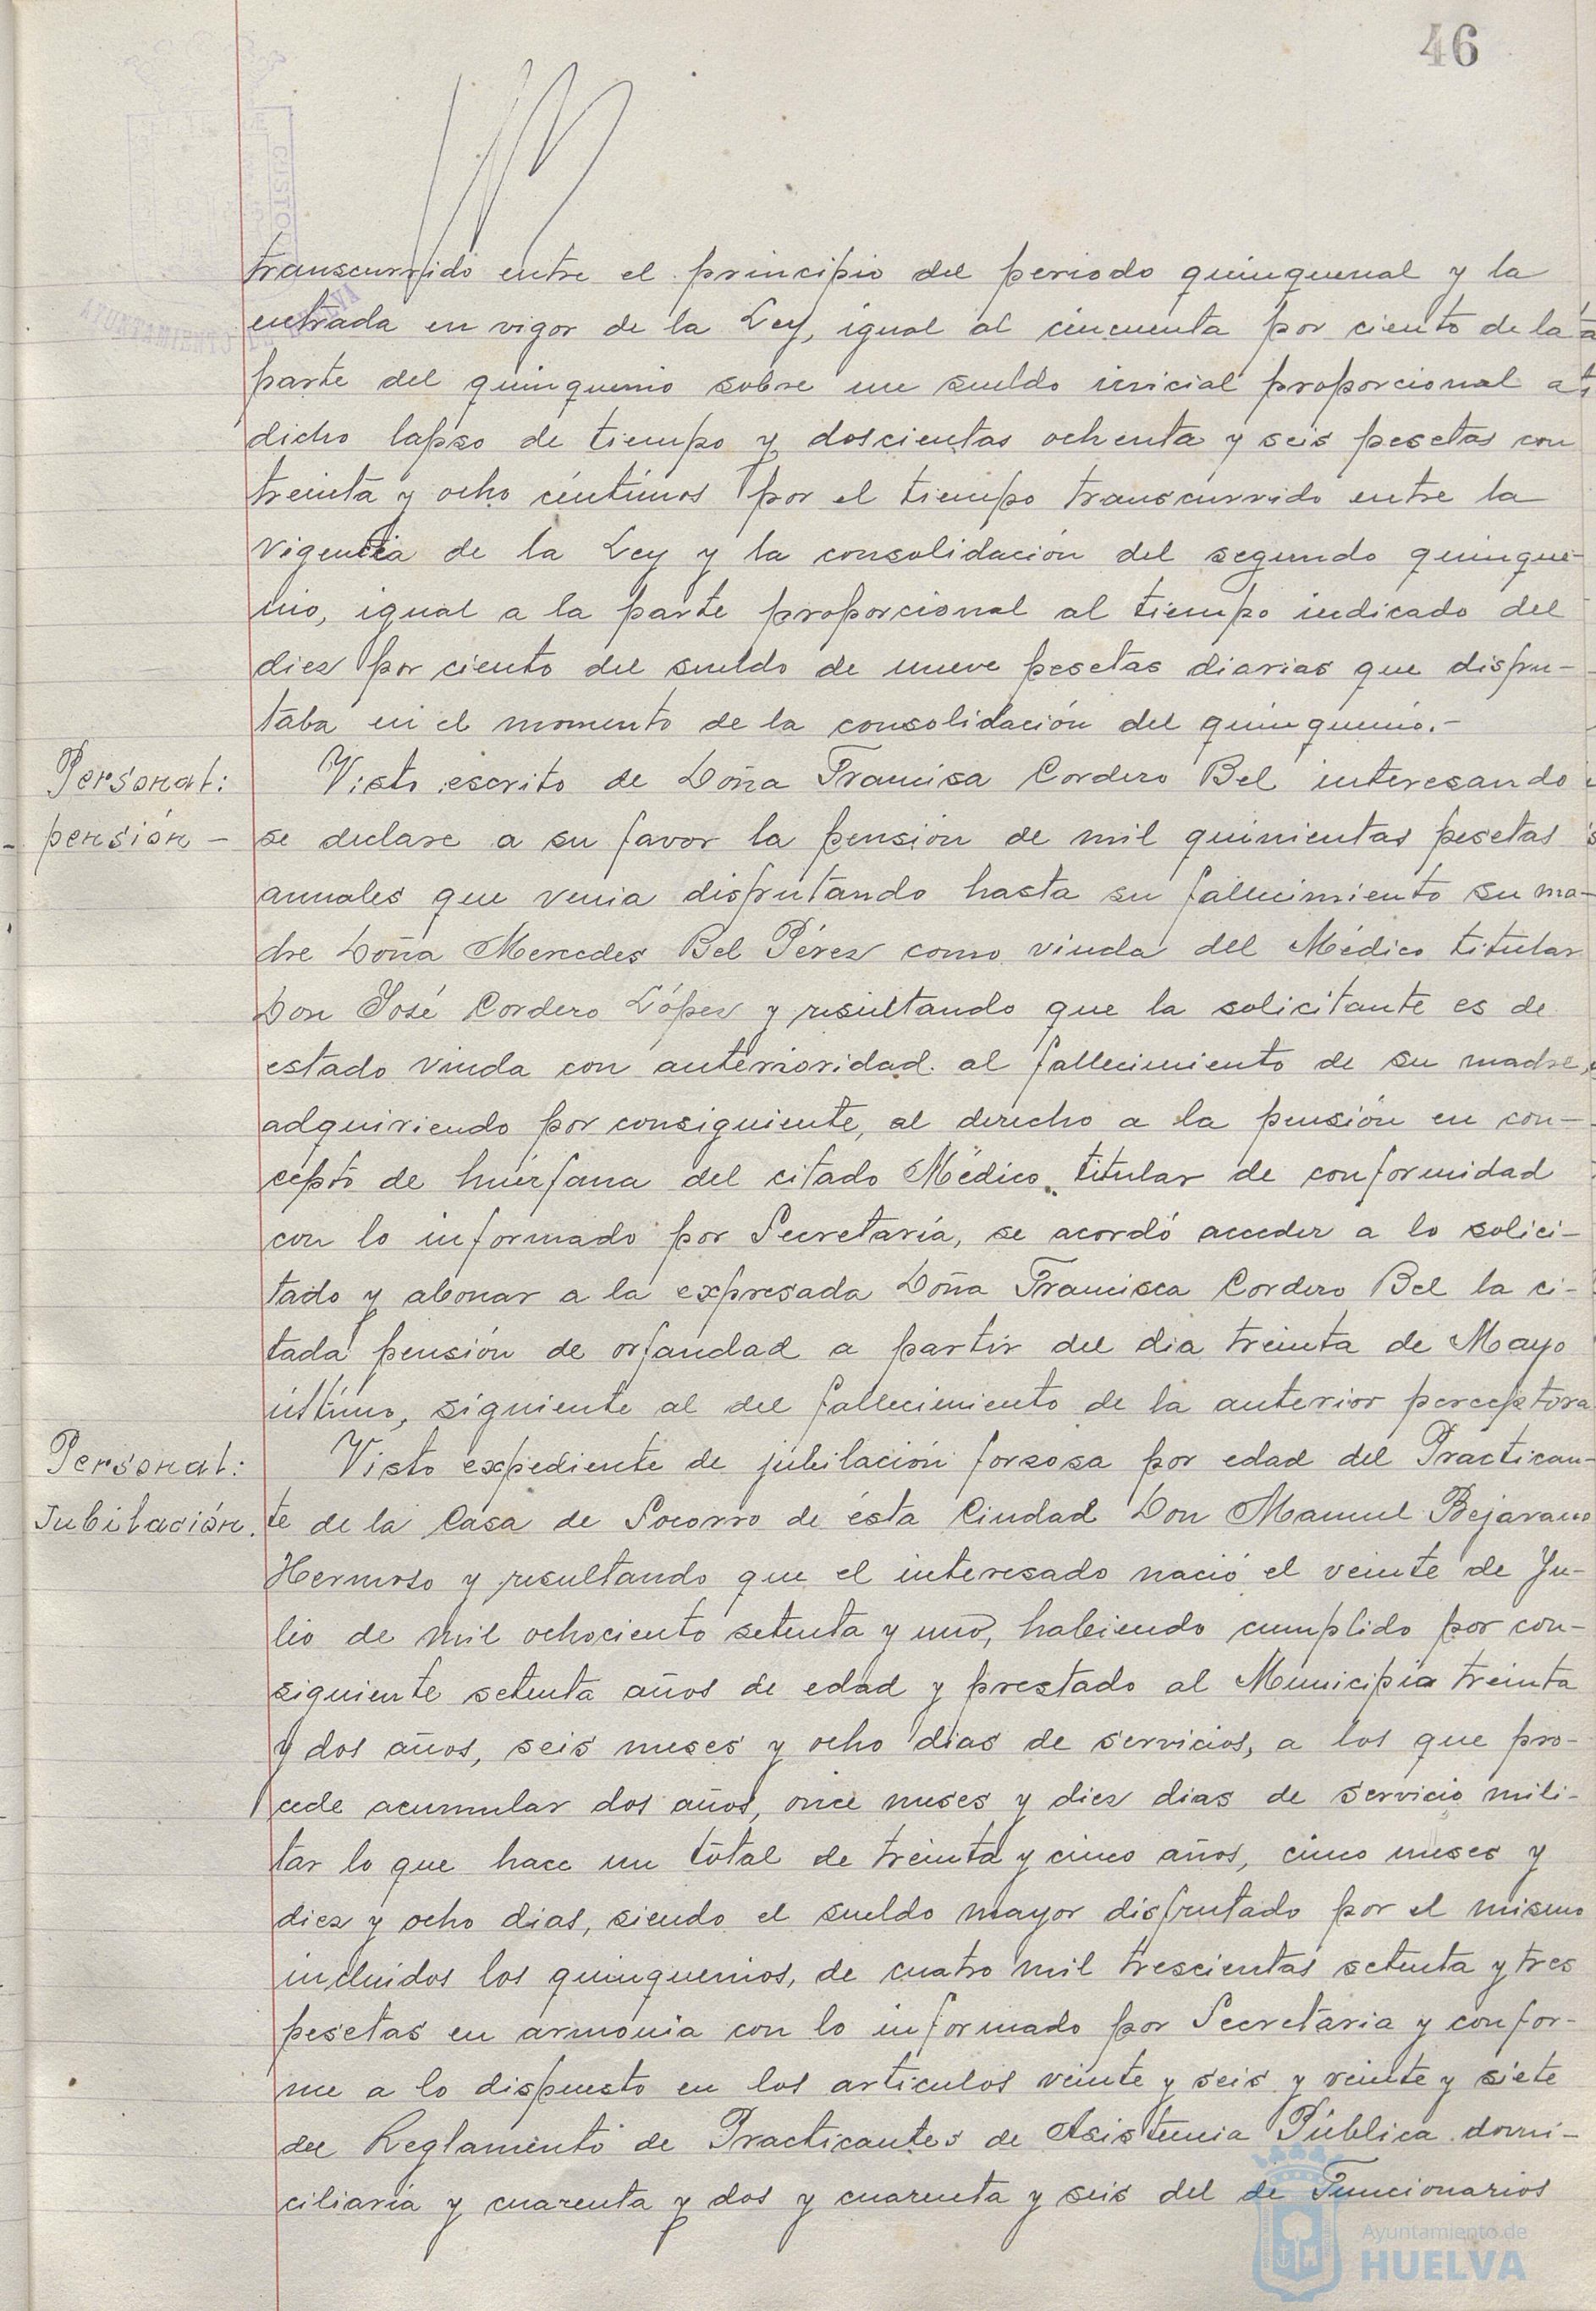 46
transcurrido entre el principio del periodo quinquenal y la
entrada en vigor de la Ley, igual al cincuenta por ciento de la
parte del quinquenio sobre un sueldo inicial proporcional a
dicho lapso de tiempo y doscientas ochenta y seis pesetas con
treinta y ocho céntimos por el tiempo transcurrido entre la
vigencia de la Ley y la consolidación del segundo quinque-
nio, igual a la parte proporcional al tiempo indicado del
diez por ciento del sueldo de nueve pesetas diarias que disfru-
taba en el momento de la consolidación del quinquenio.-
Personal:
pensión -
Visto escrito de Doña Francisa Cordero Bel interesando
se declare a su favor la pensión de mil quinientas pesetas
anuales que venia disfrutando hasta su fallecimiento su ma-
dre Doña Mercedes Bel Pérez como viuda del Médico titular
Don José Cordero López y resultando que la solicitante es de
estado viuda con anterioridad al fallecimiento de su madre,
adquiriendo por consiguiente, al derecho a la pensión en con-
cepto de huérfana del citado Médico titular de conformidad
con lo informado por Secretaría, se acordó acceder a lo solici-
tado y abonar a la expresada Doña Francisca Cordero Bel la ci-
tada pensión de orfandad a partir del dia treinta de Mayo
último, siguiente al del fallecimiento de la anterior perceptora
Personal:
Jubilación.
Visto expediente de jubilación forzosa por edad del Practican-
te de la Casa de Socorro de ésta Ciudad Don Manuel Bejarano
Hermoso y resultando que el interesado nació el veinte de Ju-
lio de mil ochociento setenta y uno, habiendo cumplido por con-
siguiente setenta años de edad y prestado al Municipio treinta
y dos años, seis meses y ocho dias de servicios, a los que pro-
cede acumular dos años, once meses y diez dias de servicio mili-
tar lo que hace un total de treinta y cinco años, cinco meses y
diez y ocho dias, siendo el sueldo mayor disfrutado por el mismo
incluidos los quinquenios, de cuatro mil trescientas setenta y tres
pesetas en armonia con lo informado por Secretaria y confor-
me a lo dispuesto en los articulos veinte y seis y veinte y siete
del Reglamento de Practicantes de Asistencia Pública domi-
ciliaria y cuarenta y dos y cuarenta y seis del de Funcionarios
Ayuntamiento de
HUELVA